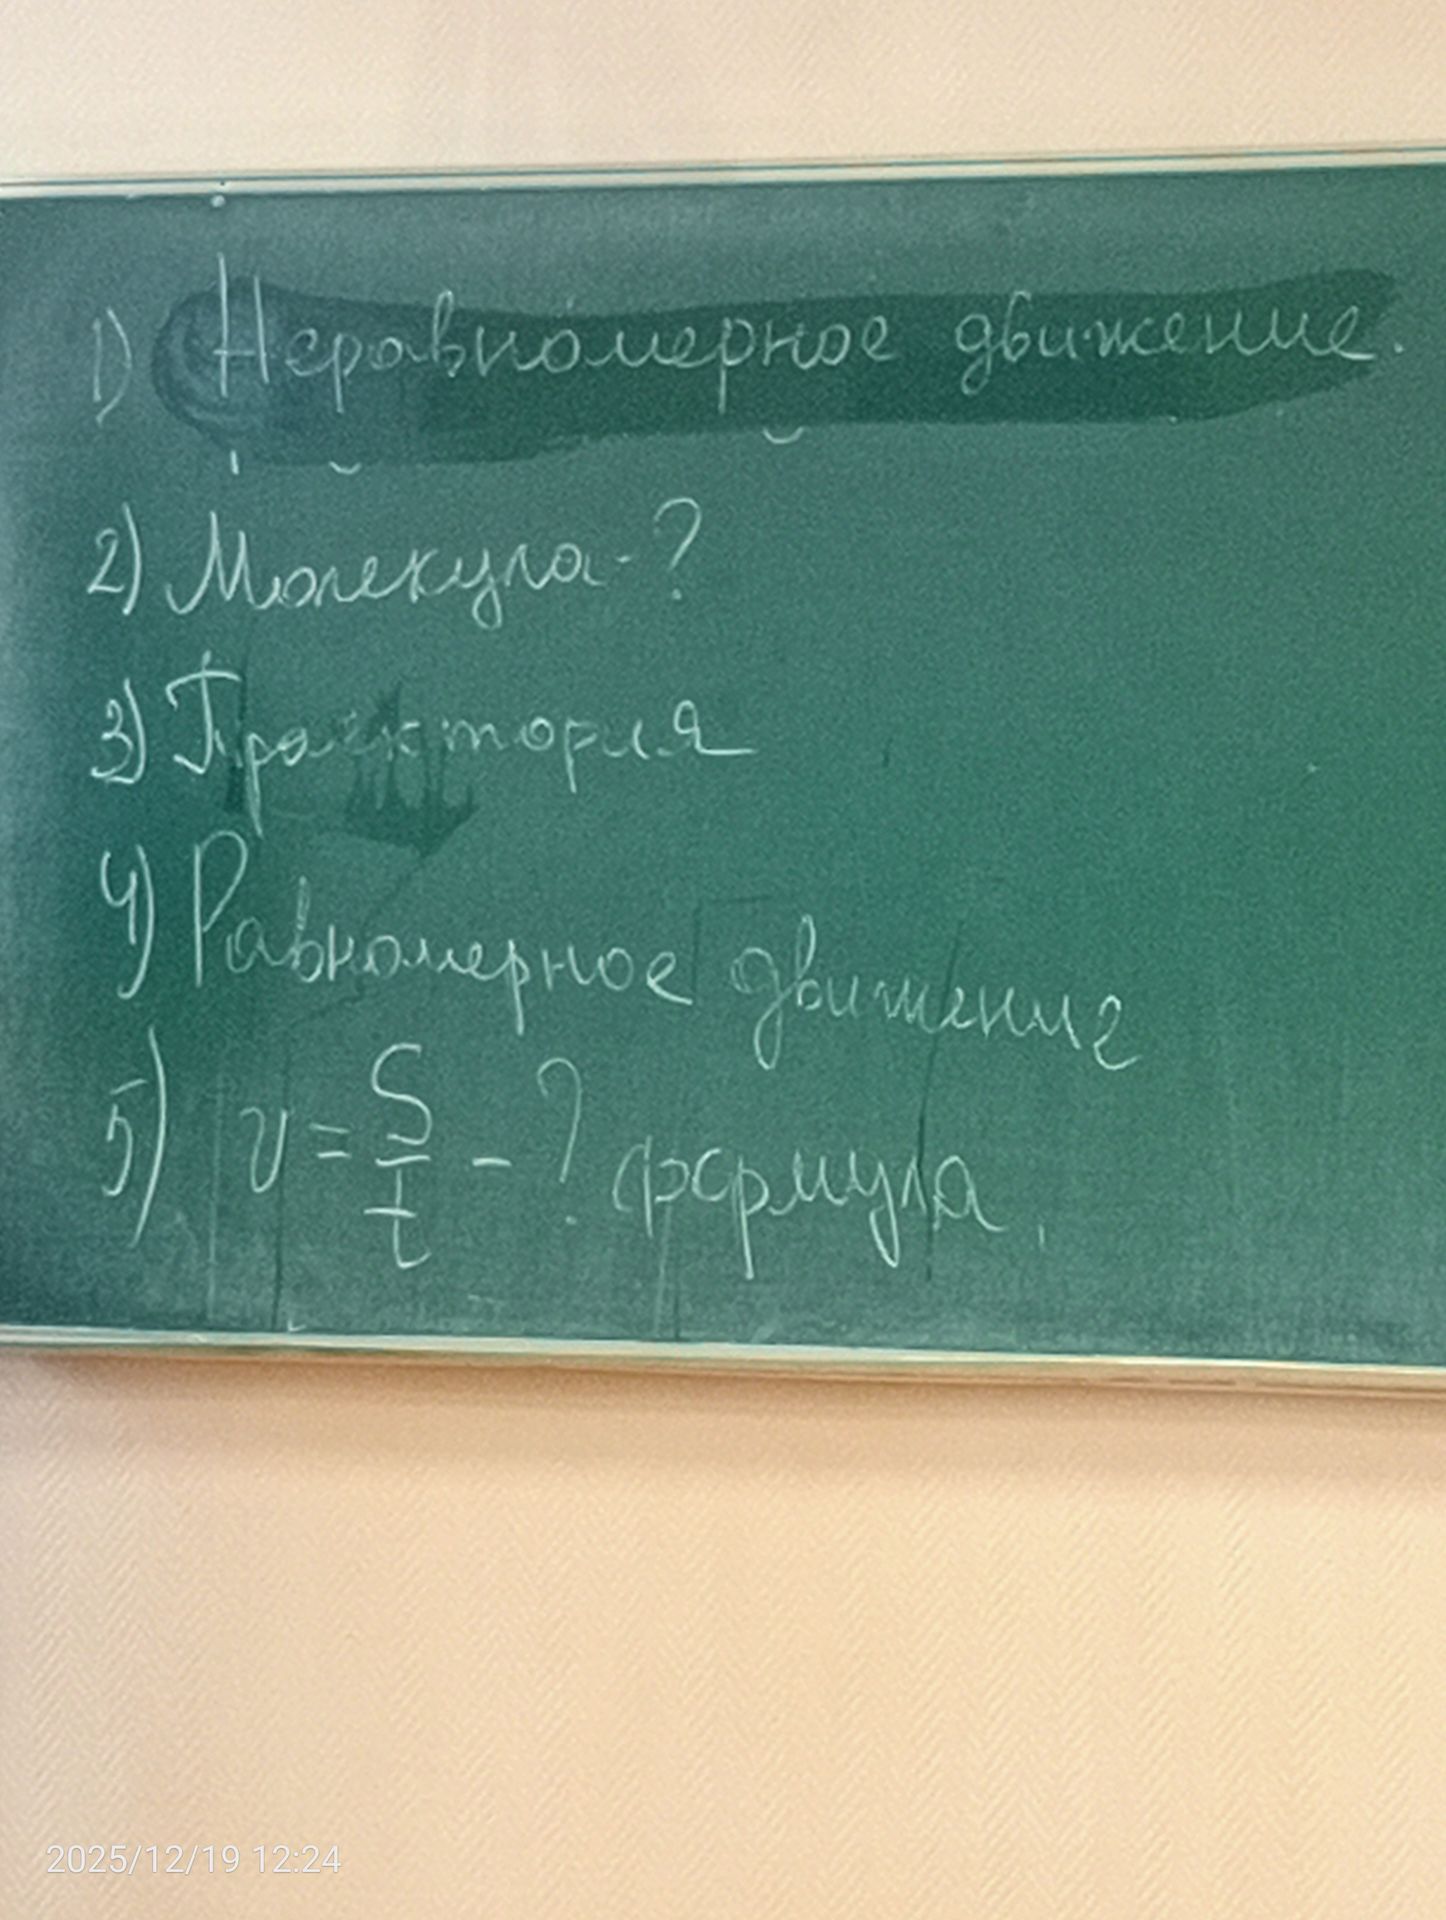 1) Неравномерное движение.
2) Молекула - ?
3) Траектория
4) Равномерное движение
5) v = S/t - ? формула
2025/12/19 12:24